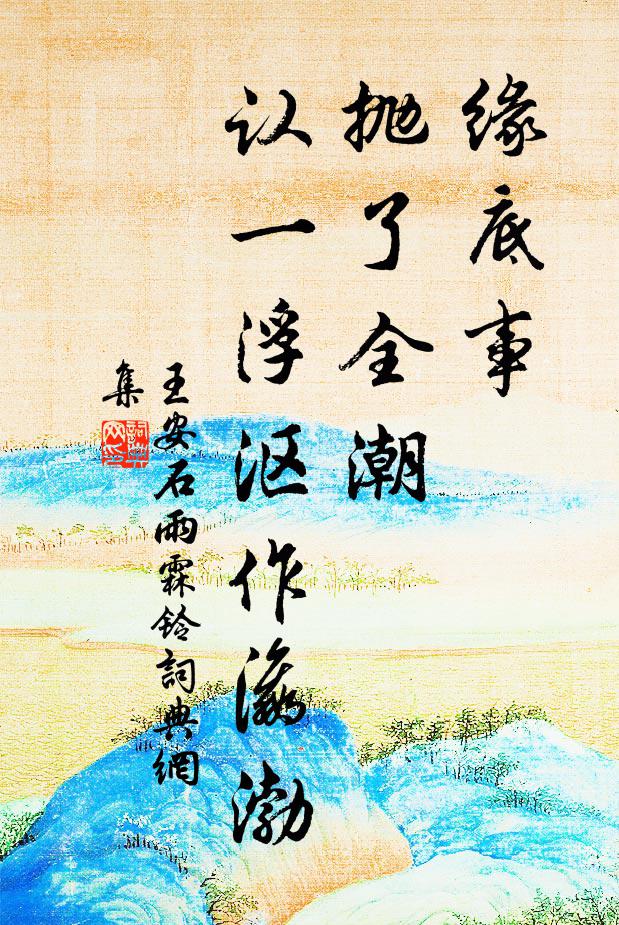 缘底事
抛了全潮
认一浮沤作瀛渤
王安石雨霖铃詞典網
集